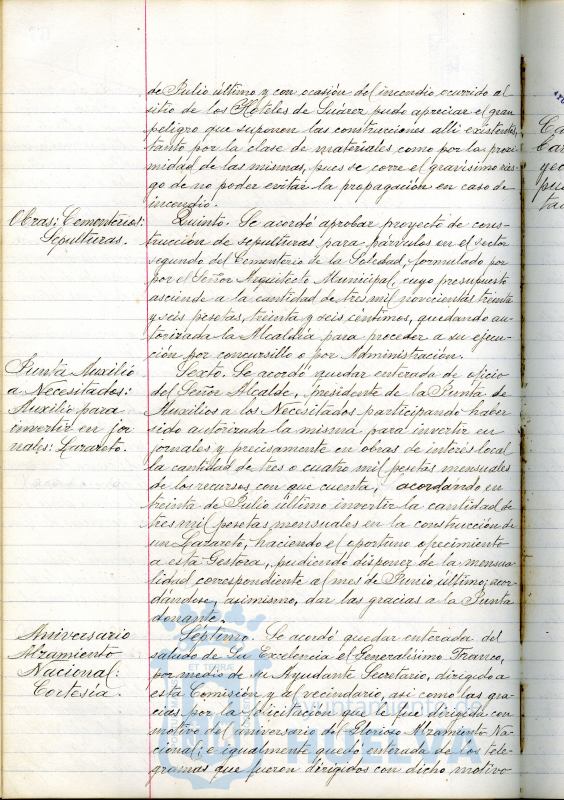 de Julio último y con ocasión del incendio ocurrido al
sitio de los Hoteles de Suárez pudo apreciar el gran
peligro que suponen las construcciones alli existentes,
tanto por la clase de materiales como por la proxi-
midad de las mismas, pues se corre el gravisimo ries-
go de no poder evitar la propagación en caso de
incendio.
Obras: Cementerios:
Sepulturas.
Quinto. Se acordó aprobar proyecto de cons-
trucción de sepulturas para párvulos en el sector
segundo del Cementerio de la Soledad, formulado por
por el Señor Arquitecto Municipal, cuyo presupuesto
asciende a la cantidad de tres mil novecientas treinta
y seis pesetas, treinta y seis céntimos, quedando au-
torizada la Alcaldía para proceder a su ejecu-
ción por concursillo o por Administración.
Junta Auxilio
a Necesitados:
Auxilio para
invertir en jor
nales: Lazareto.
Sexto. Se acordó quedar enterada de oficio
del Señor Alcalde, presidente de la Junta de
Auxilios a los Necesitados participando haber
sido autorizada la misma para invertir en
jornales y precisamente en obras de interés local
la cantidad de tres o cuatro mil pesetas mensuales
de los recursos con que cuenta, acordando en
treinta de Julio último invertir la cantidad de
tres mil pesetas mensuales en la construcción de
un Lazareto, haciendo el oportuno ofrecimiento
a esta Gestora, pudiendo disponer de la mensua-
lidad correspondiente al mes de Junio último; acor-
dándose, asimismo, dar las gracias a la Junta
donante.
Aniversario
Alzamiento
Nacional:
Cortesía.
Séptimo. Se acordó quedar enterada del
saludo de Su Excelencia el Generalísimo Franco,
por medio de su Ayudante Secretario, dirigido a
esta Comisión y al vecindario, asi como las gra-
cias por la felicitación que le fue dirigida con
motivo del aniversario del Glorioso Alzamiento Na-
cional; e igualmente quedó enterada de los tele-
gramas que fueron dirigidos con dicho motivo
ET TERRÆ
Ayuntamiento de
HUELVA